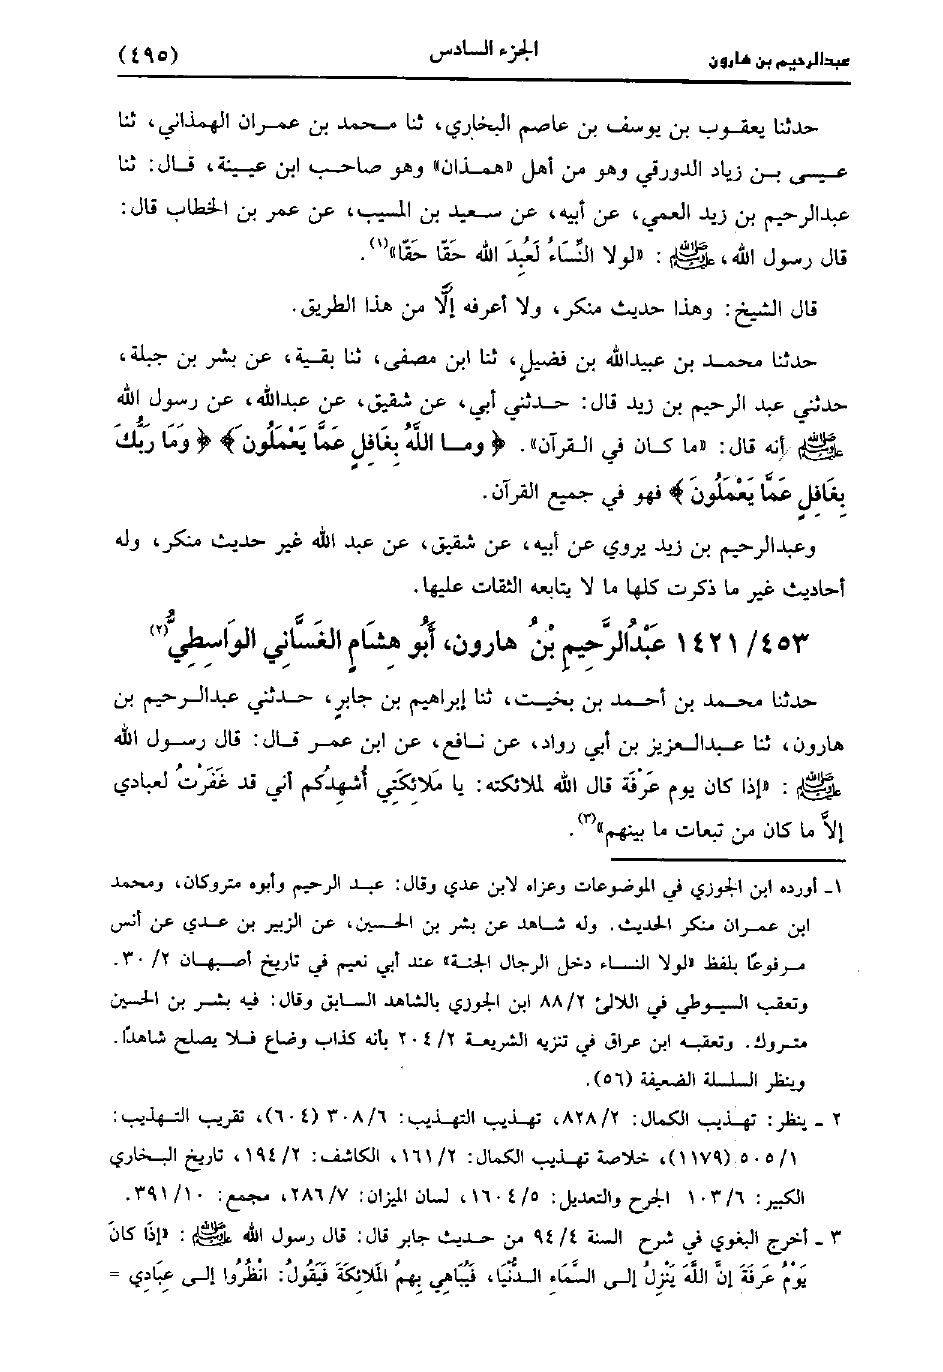 عبدالرحيم بن هارون الجزء السادس (٤٩٥)
حدثنا يعقوب بن يوسف بن عاصم البخاري، ثنا محمد بن عمران الهمذاني، ثنا
عيسى بن زياد الدورقي وهو من أهل «همذان» وهو صاحب ابن عيينة، قال: ثنا
عبدالرحيم بن زيد العمي، عن أبيه، عن سعيد بن المسيب، عن عمر بن الخطاب قال:
قال رسول الله، ﷺ: «لولا النِّسَاءُ لَعُبِدَ الله حَقّا حَقّا»(١).
قال الشيخ: وهذا حديث منكر، ولا أعرفه إلَّا من هذا الطريق.
حدثنا محمد بن عبيدالله بن فضيل، ثنا ابن مصفى، ثنا بقية، عن بشر بن جبلة،
حدثني عبد الرحيم بن زيد قال: حدثني أبي، عن شقيق، عن عبدالله، عن رسول الله
ﷺ أنه قال: «ما كان في القرآن». ﴿ وما اللَّهُ بِغَافِلٍ عَمَّا يَعْمَلُونَ﴾ ﴿ وَمَا رَبُّكَ
بِغَافِلٍ عَمَّا يَعْمَلُونَ ﴾ فهو في جميع القرآن.
وعبدالرحيم بن زيد يروي عن أبيه، عن شقيق، عن عبد الله غير حديث منكر، وله
أحاديث غير ما ذكرت كلها ما لا يتابعه الثقات عليها.
٤٥٣/ ١٤٢١ عَبْدُالرَّحِيمِ بْنُ هارون، أَبُو هشَامٍ الغَسَّانِي الوَاسِطِيُّ(٢)
حدثنا محمد بن أحمد بن بخيت، ثنا إبراهيم بن جابرٍ، حدثني عبدالرحيم بن
هارون، ثنا عبدالعزيز بن أبي رواد، عن نافع، عن ابن عمر قال: قال رسول الله
ﷺ: «إذا كان يوم عَرَفَة قال الله لملائكته: يا مَلَائِكَتِي أُشهِدُكم أني قد غَفَرْتُ لعبادي
إلاَّ ما كان من تبعات ما بينهم»(٣).
١ـ أورده ابن الجوزي في الموضوعات وعزاه لابن عدي وقال: عبد الرحيم وأبوه متروكان، ومحمد
ابن عمران منكر الحديث. وله شاهد عن بشر بن الحسين، عن الزبير بن عدي عن أنس
مرفوعًا بلفظ «لولا النساء دخل الرجال الجنة» عند أبي نعيم في تاريخ أصبهان ٢/ ٣٠.
وتعقب السيوطي في اللالئ ٢/ ٨٨ ابن الجوزي بالشاهد السابق وقال: فيه بشر بن الحسين
متروك. وتعقبه ابن عراق في تنزيه الشريعة ٢/ ٢٠٤ بأنه كذاب وضاع فلا يصلح شاهدًا.
وينظر السلسلة الضعيفة (٥٦).
٢ ـ ينظر: تهذيب الكمال: ٢/ ٨٢٨، تهذيب التهذيب: ٦/ ٣٠٨ (٦٠٤)، تقريب التهذيب:
١/ ٥٠٥ (١١٧٩)، خلاصة تهذيب الكمال: ٢/ ١٦١، الكاشف: ٢/ ١٩٤، تاريخ البخاري
الكبير: ٦/ ١٠٣ الجرح والتعديل: ٥/ ١٦٠٤، لسان الميزان: ٧/ ٢٨٦، مجمع: ١٠/ ٣٩١.
٣ ـ أخرج البغوي في شرح السنة ٤/ ٩٤ من حديث جابر قال: قال رسول الله ﷺ: «إذَا كَانَ
يَوْمُ عَرَفَةَ إنَّ اللَّهَ يَنْزِلُ إلى السَّمَاءِ الدُّنْيَا، فَيُبَاهِي بِهِمُ المَلائِكَةَ فَيَقُولُ: انْظُرُوا إلى عِبَادِي =